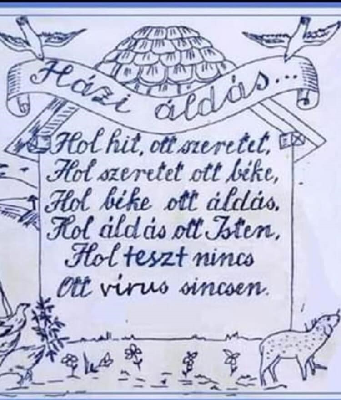 Házi áldás...
Hol hit, ott szeretet,
Hol szeretet ott béke,
Hol béke ott áldás,
Hol áldás ott Isten,
Hol teszt nincs
Ott vírus sincsen.